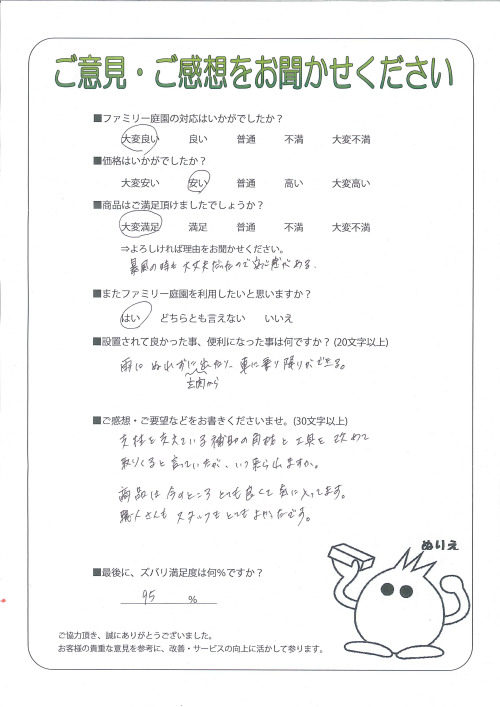 ご意見・ご感想をお聞かせください
■ファミリー庭園の対応はいかがでしたか？
大変良い 良い 普通 不満 大変不満
■価格はいかがでしたか？
大変安い 安い 普通 高い 大変高い
■商品はご満足頂けましたでしょうか？
大変満足 満足 普通 不満 大変不満
⇒よろしければ理由をお聞かせください。
暴風の時も大丈夫だったので安心感がある.
■またファミリー庭園を利用したいと思いますか？
はい どちらとも言えない いいえ
■設置されて良かった事、便利になった事は何ですか？(20文字以上)
雨にぬれずに出たり、車に乗り降りができる。
玄関から
■ご感想・ご要望などをお書きくださいませ。(30文字以上)
支柱を支えている補助の角柱と工具を改めて
取りくると言っていたが、いつ来られますか。
商品は今のところとても良くて気に入ってます。
職人さんもスタッフもとてもよかったです。
ぬりえ
■最後に、ズバリ満足度は何％ですか？
95 ％
ご協力頂き、誠にありがとうございました。
お客様の貴重な意見を参考に、改善・サービスの向上に活かして参ります。